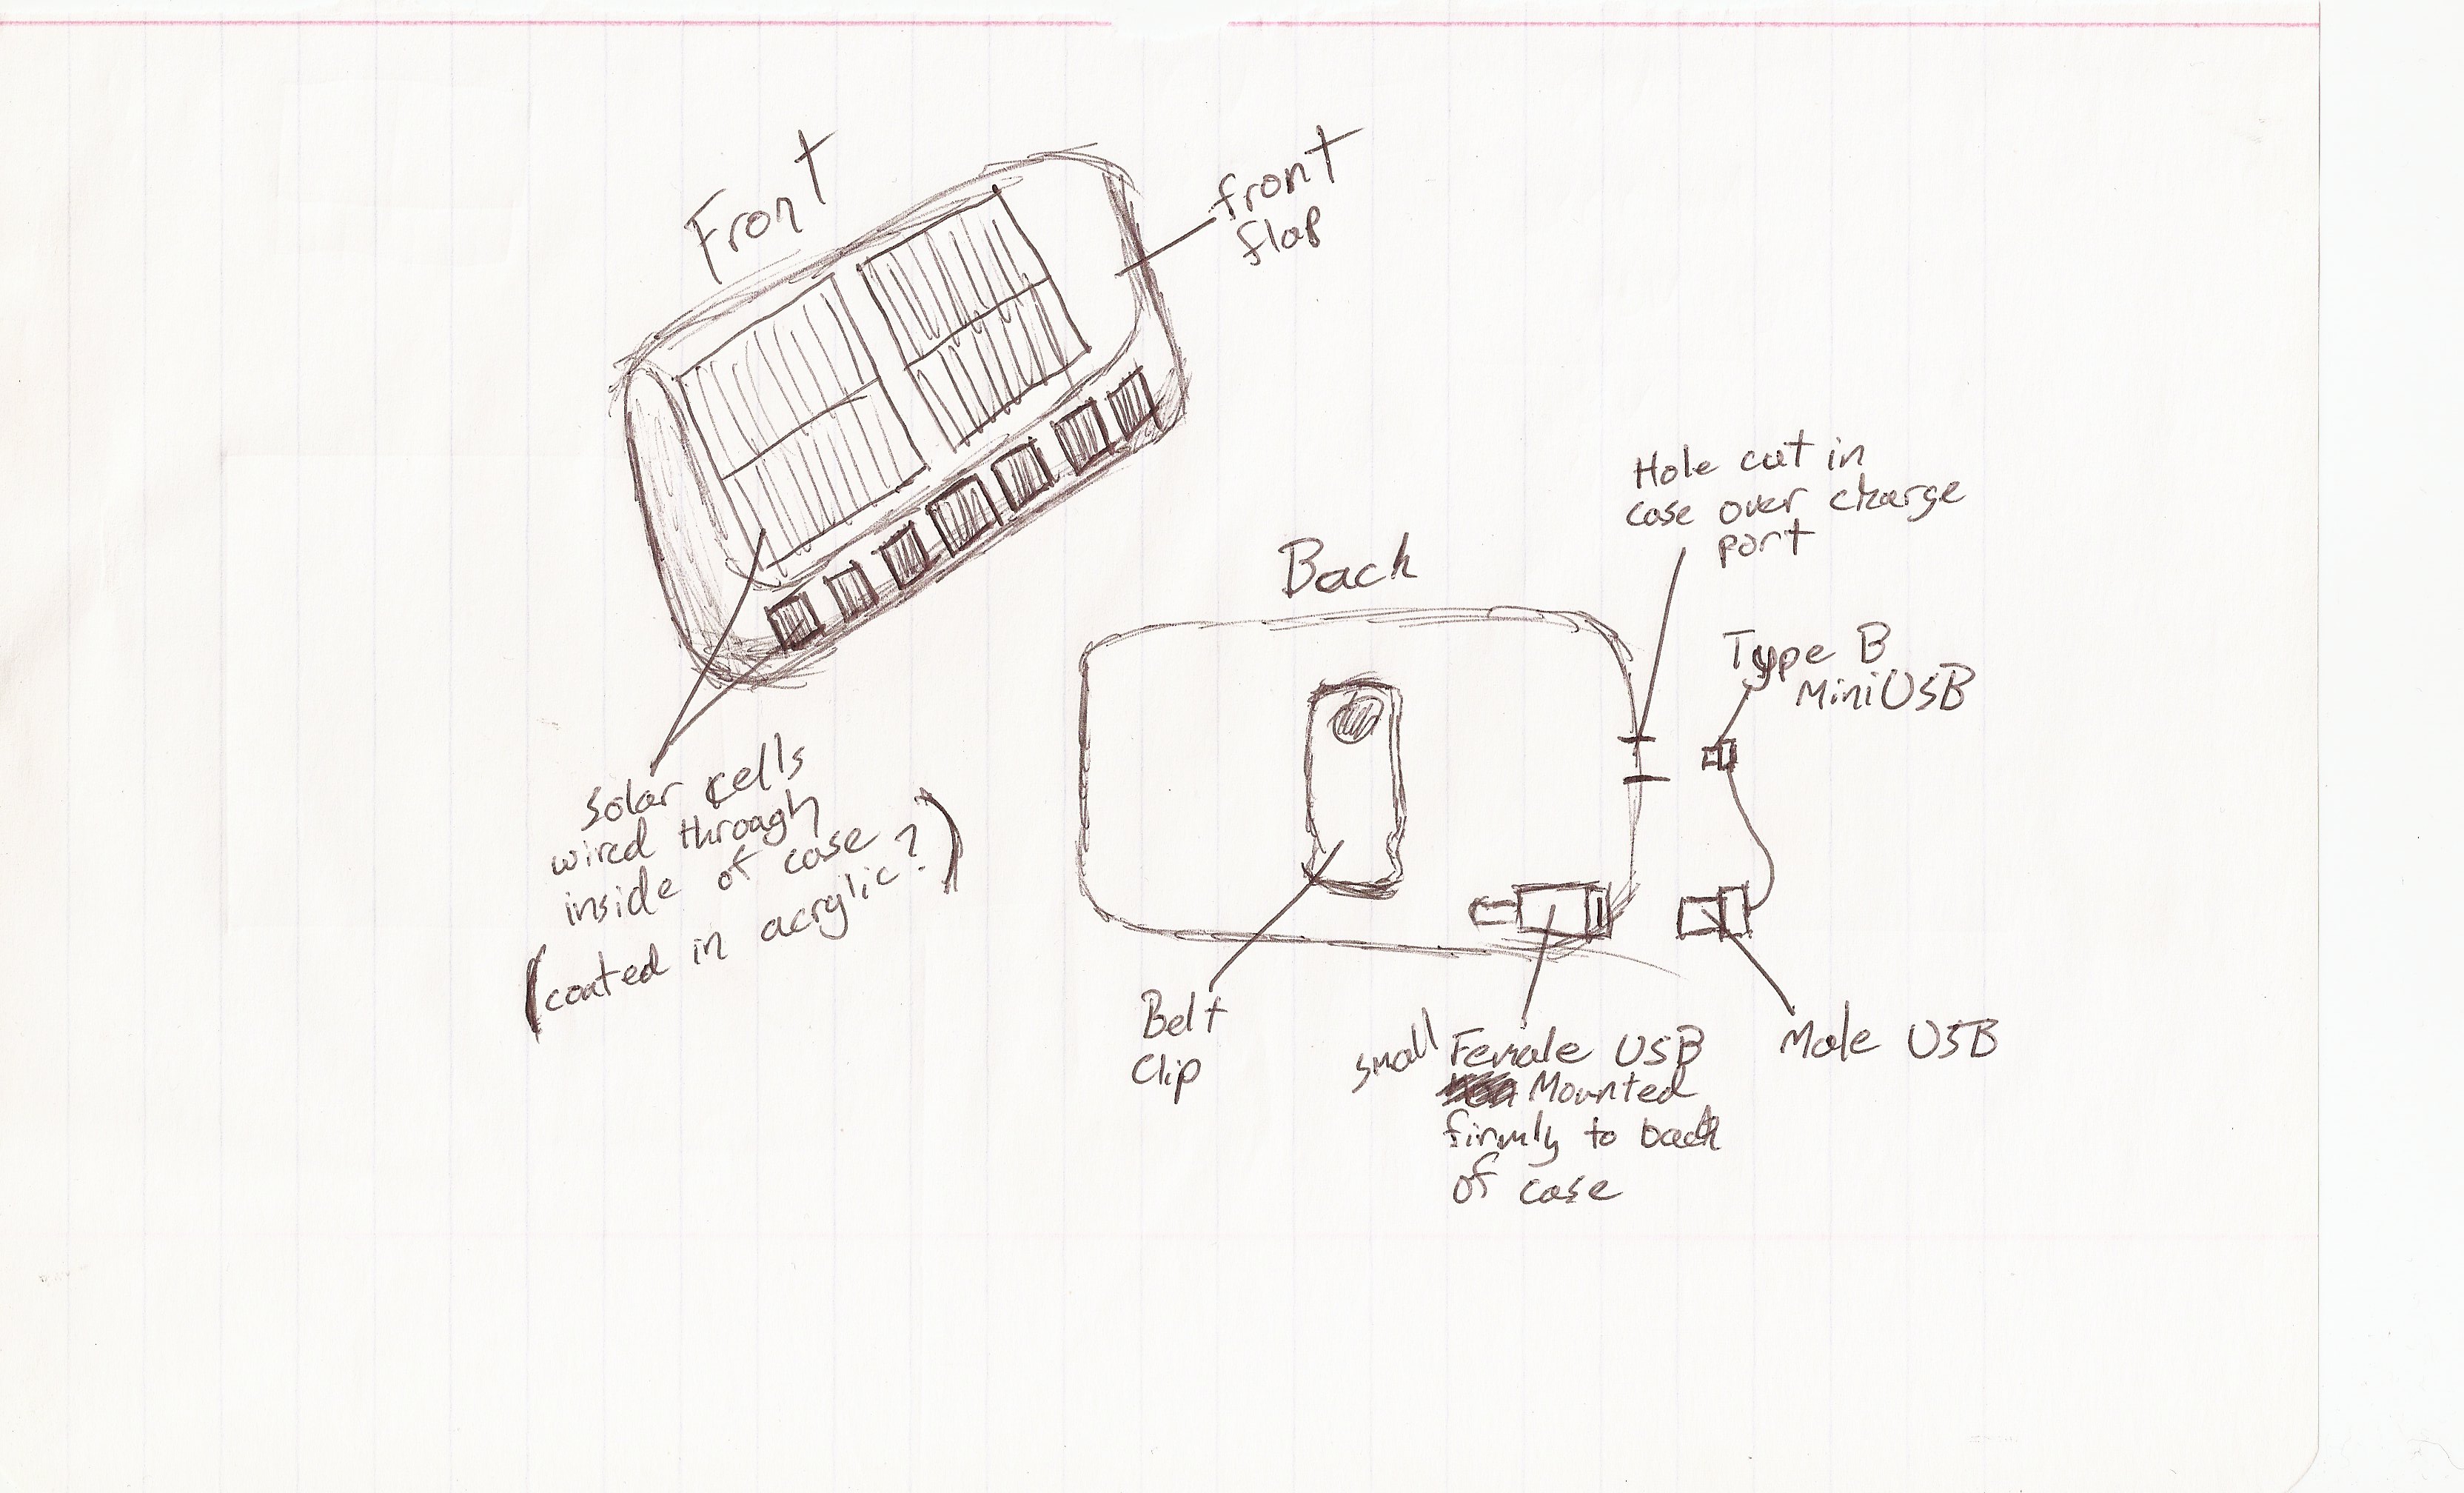 Front
front
flap
Solar cells
wired through
inside of case
(coated in acrylic?)
Back
Hole cut in
case over charge
port
Type B
MiniUSB
Belt
Clip
small Female USB
Mounted
firmly to back
of case
Male USB